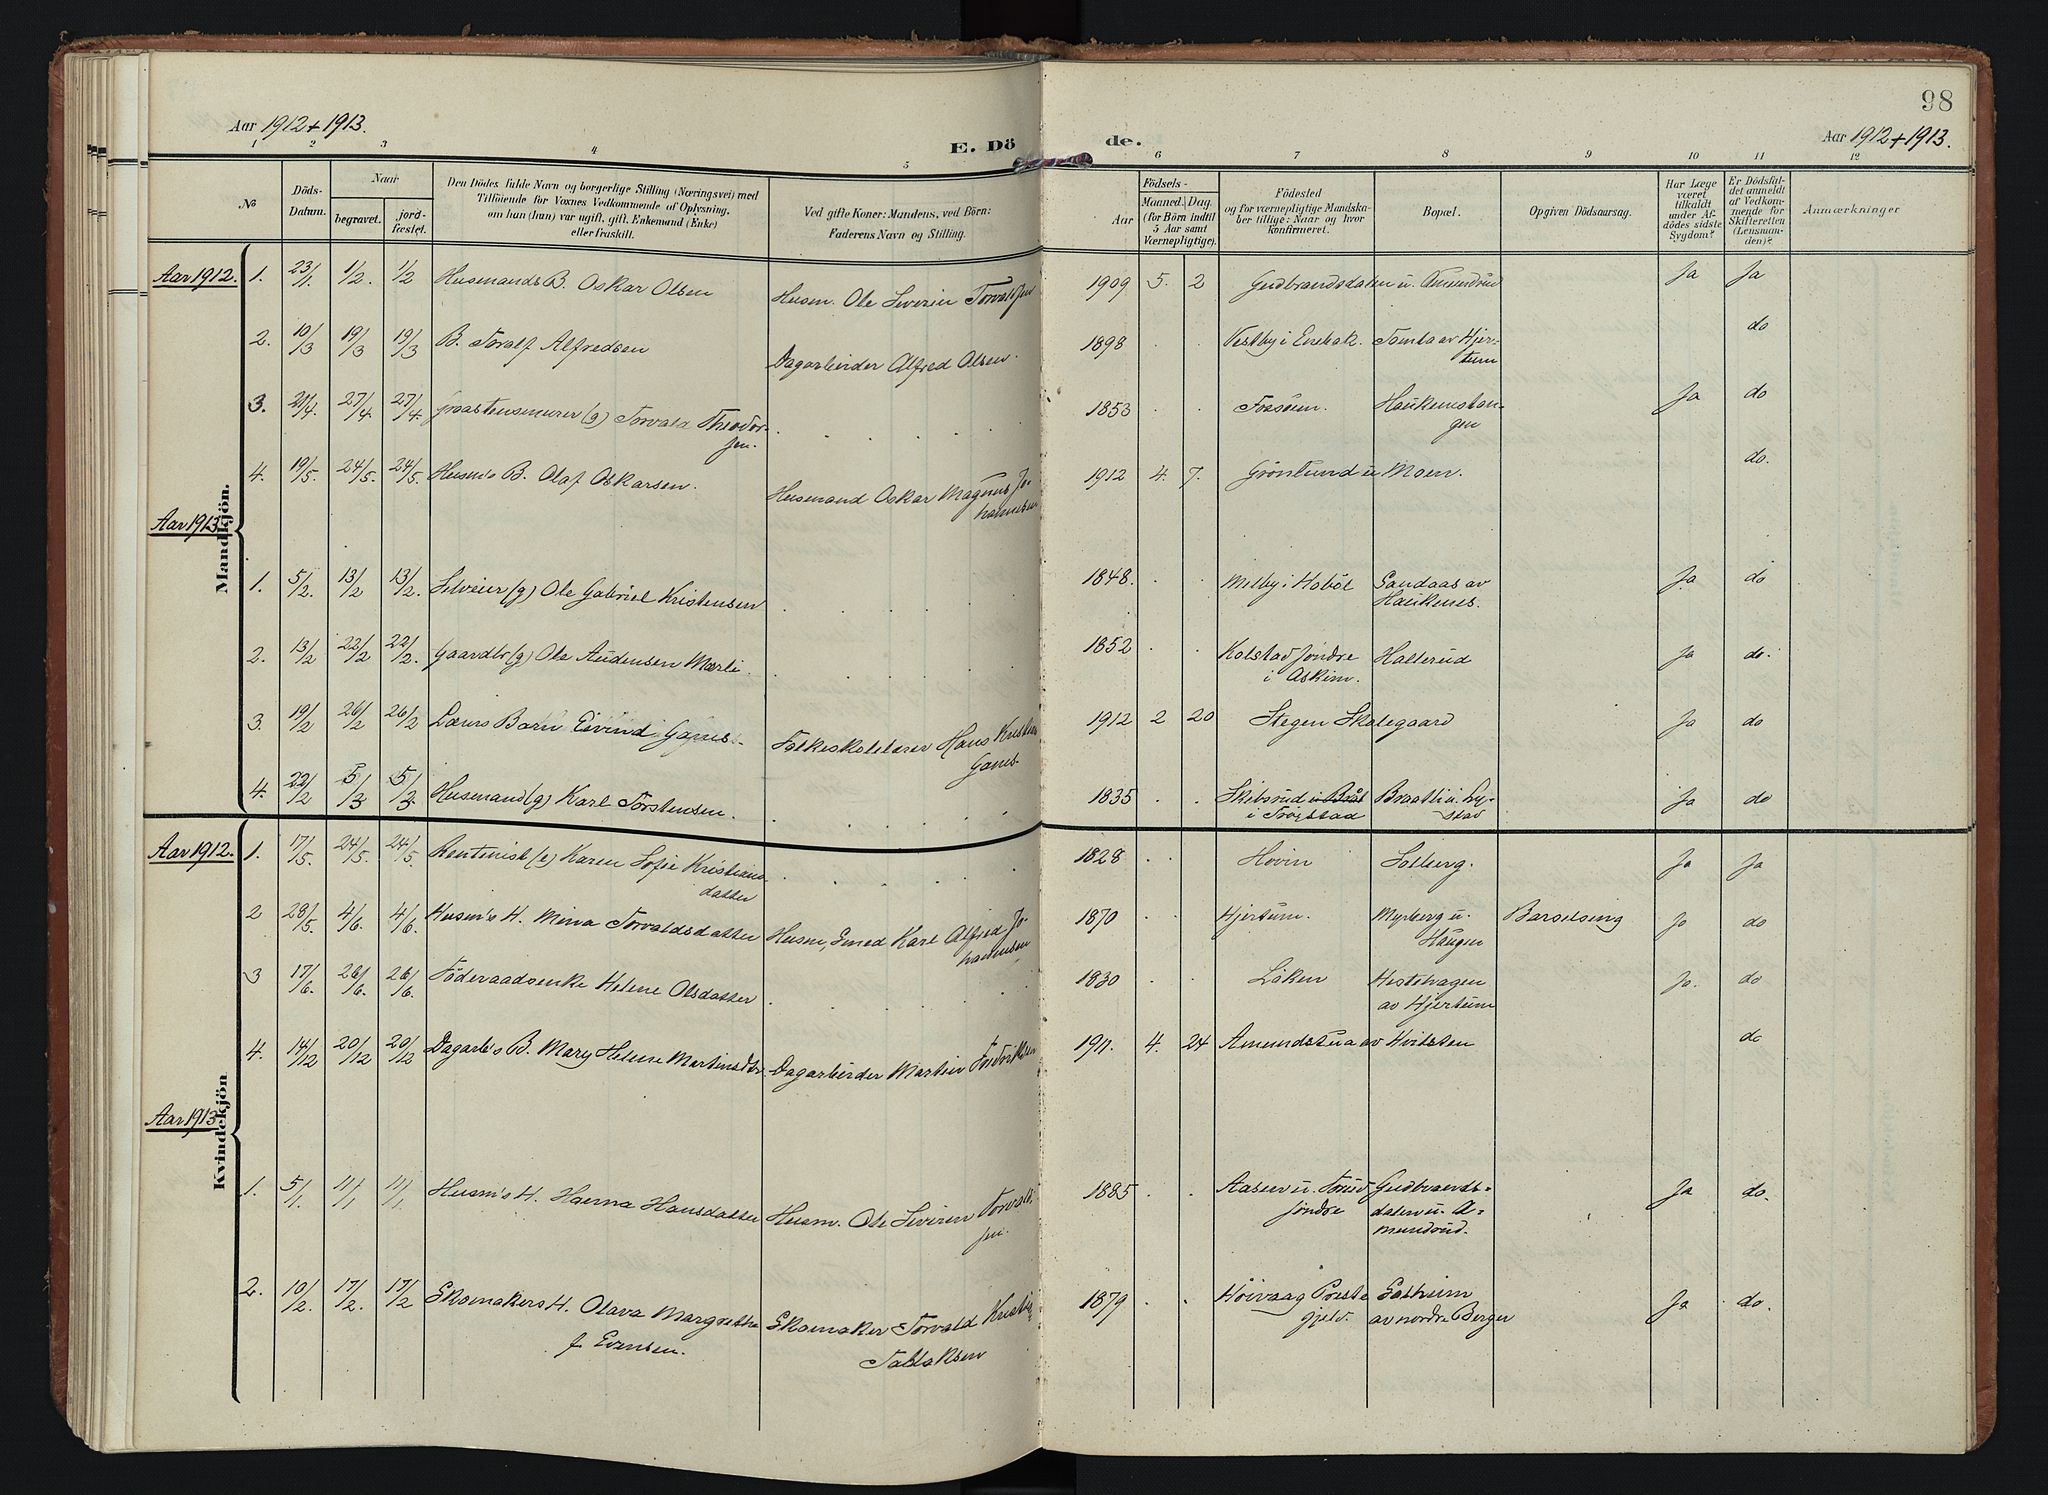 98
Aar 1912 + 1913.
E. Dö
de.
Aar 1912 + 1913.
1 2 3 4 5 6 7 8 9 10 11 12
№
Döds-
Datum.
Naar
begravet.
jord-
fæstet.
Den Dödes fulde Navn og borgerlige Stilling (Næringsvei) med
Tilföiende for Voxnes Vedkommende af Oplysning,
om han (hun) var ugift, gift, Enkemand (Enke)
eller fraskilt.
Ved gifte Koner: Mandens, ved Börn:
Faderens Navn og Stilling.
Födsels-
Aar
Maaned. Dag.
(for Börn indtil
5 Aar samt
Værnepligtige).
Födested
og for værnepligtige Mandska-
ber tillige: Naar og hvor
konfirmeret.
Bopæl.
Opgiven Dödsaarsag.
Har Læge
været
tilkaldt
under Af-
dödes sidste
Sygdom?
Er Dödsfal-
det anmeldt
af Vedkom-
mende for
Skifteretten
(Lensman-
den)?
Anmærkninger
Mandkjön.
Aar 1912. 1. 23/1 1/2. 1/2 Husmands B. Oskar Olsen Husm. Ole Severin Torvaldsen 1909 5. 2 Gudbrandsdalen u. Amundrud Ja Ja
2. 10/3 19/3 19/3 B. Toralf Alfredsen Dagarbeider Alfred Olsen. 1898 . . Vestby i Enebak. Tomta av Hjer-
tum do
3. 21/4. 27/4. 27/4. Graastensmurer (g) Torvald Theodor-
sen. 1853 . . Fosseen. Haukenestan-
gen Ja do
4. 19/5. 24/5. 24/5. Husm's B. Olaf Oskarsen. Husmand Oskar Magnus Jo-
hannesen 1912 4. 7. Grönlund u Moen. do.
Aar 1913
1. 5/2. 13/2 13/2. Selveier (g) Ole Gabriel Kristensen 1848. . . Melby i Hobøl Sandaas av
Haukenes. Ja do
2. 13/2 22/2 22/2. Gaardbr (g) Ole Audensen Mærli. 1852 . . Kolstad søndre
i Askim. Halterud Ja do.
3. 19/2 26/2 26/2 Lærers Barn Eivind Ganes. Folkeskolelærer Hans Kristian
Ganes. 1912 2 20 Stegen Skolegaard Ja do
4. 22/2 5/3 5/3. Husmand (g) Karl Torstensen. 1835 . . Skibsrud
i Trøgstad Braatli u. Ly-
stad Ja do
Kvindekjön
Aar 1912. 1. 17/5. 24/5. 24/5. Rentenist (e) Karen Sofie Kristians-
datter 1828 . . Hovin Solberg. Ja Ja
2 28/5. 4/6. 4/6. Husm's H. Mina Torvaldsdatter Husm, Smed Karl Alfred Jo-
hannesen 1870 . . Hjertum. Myrberg u.
Haugen Barselseng Ja do
3 17/6. 26/6. 26/6. Föderaadsenke Helene Olsdatter 1830 . . Løken Hestehagen
av Hjertum Ja. do
4. 14/12 20/12 20/12 Dagarb's B. Mary Helene Martinsdtr. Dagarbeider Martin Fredriksen 1911. 4. 24 Amundstua av Hvitsten do
Aar 1913
1. 5/1. 11/1 11/1. Husm's H. Hanna Hansdatter Husm. Ole Severin Torvald-
sen. 1885 . . Aasen u.
søndre Gudbrands-
dalen u. A-
mundrud. Ja do.
2. 10/2. 17/2. 17/2 Skomakers H. Olava Margrethe
f. Evensen. Skomaker Torvald Kristian
1879 . . Høivaag Preste-
gjeld. Solheim
av nordre Berger Ja do.